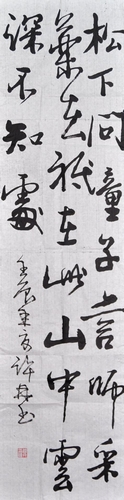 松下問童子言師采
藥去祇在此山中雲
深不知處
壬辰
書